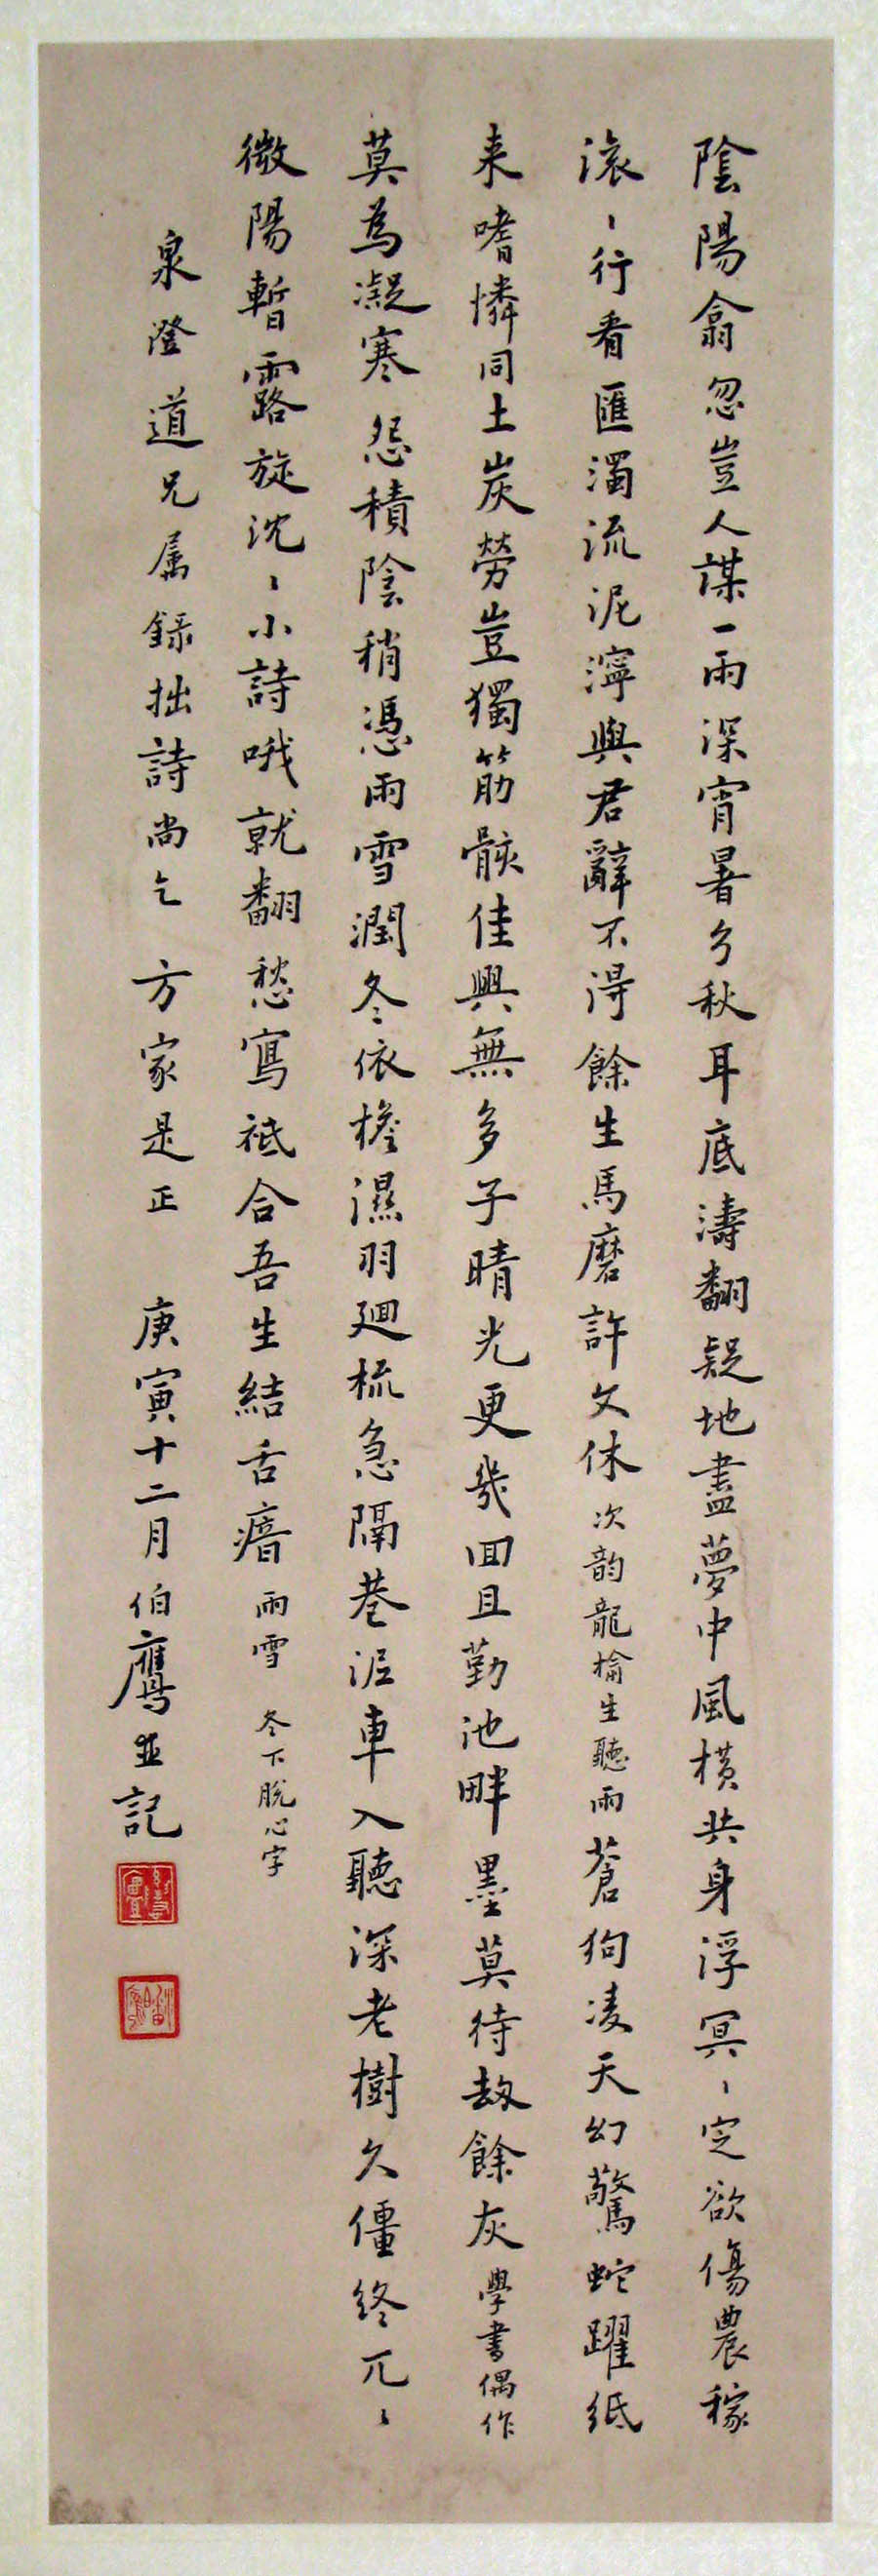 陰陽翕忽豈人謀一雨深宵暑兮秋耳底濤翻疑地盡夢中風橫共身浮冥〻定欲傷農稼
滾〻行看匯濁流泥濘與君辭不得餘生馬磨許文休次韵龍榆生聽雨蒼狗凌天幻驚蛇躍紙
来嗜憐同土炭勞豈獨筋骸佳興無多子晴光更幾回且勤池畔墨莫待劫餘灰學書偶作
莫為凝寒怨積陰稍憑雨雪潤冬依檐濕羽迴梳急隔巷泥車入聽深老樹久僵終兀〻
微陽暫露旋沈〻小詩哦就翻愁寫祗合吾生結舌瘖雨雪 冬下脫心字
泉澄道兄属録拙詩尚乞方家是正 庚寅十二月伯鷹並記